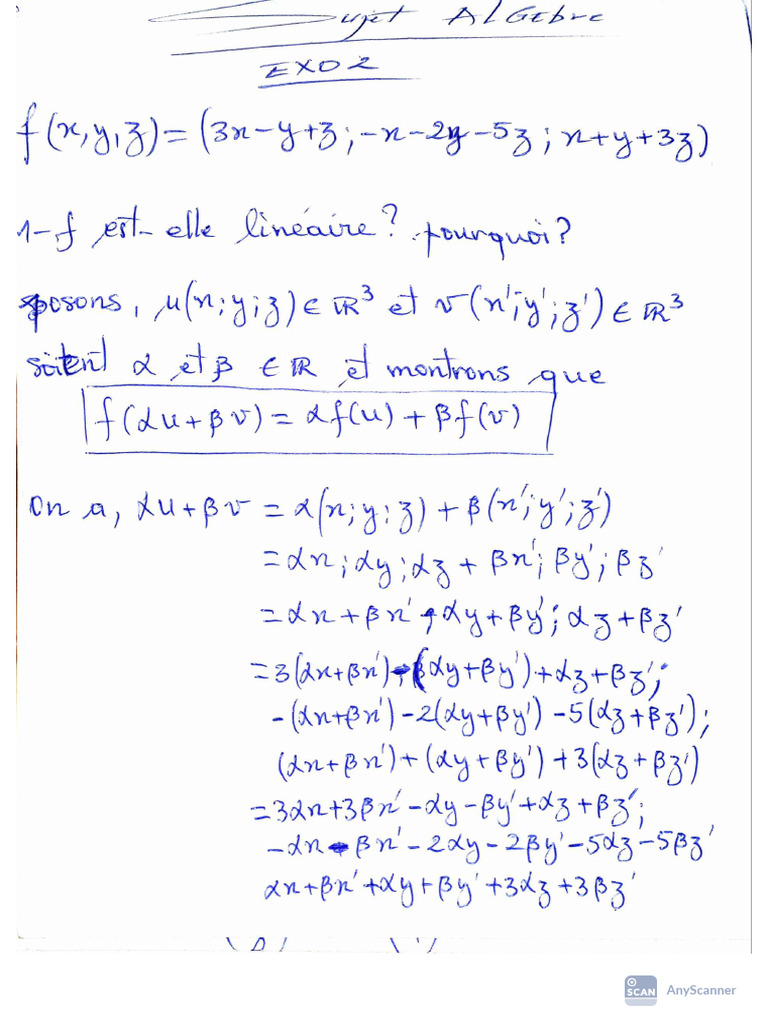 Sujet Algebre
EXO 2
f(x,y,z)=(3x-y+z;-x-2y-5z;x+y+3z)
1-f est-elle linéaire? pourquoi?
posons, u(x;y;z)∈ℝ³ et v(x';y';z')∈ℝ³
soient α et β ∈ℝ et montrons que
f(αu+βv)=αf(u)+βf(v)
On a, αu+βv=α(x;y;z)+β(x';y';z')
=αx;αy;αz+βx';βy';βz'
=αx+βx';αy+βy';αz+βz'
=3(αx+βx')-(αy+βy')+αz+βz';
-(αx+βx')-2(αy+βy')-5(αz+βz');
(αx+βx')+(αy+βy')+3(αz+βz')
=3αx+3βx'-αy-βy'+αz+βz';
-αx-βx'-2αy-2βy'-5αz-5βz'
αx+βx'+αy+βy'+3αz+3βz'
SCAN AnyScanner